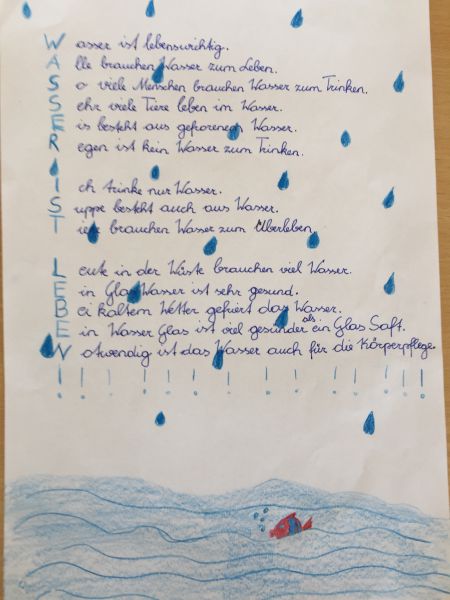 Wasser ist lebenswichtig.
Alle brauchen Wasser zum Leben.
So viele Menschen brauchen Wasser zum Trinken.
Sehr viele Tiere leben im Wasser.
Eis besteht aus gefrorenem Wasser.
Regen ist kein Wasser zum Trinken.
Ich trinke nur Wasser.
Suppe besteht auch aus Wasser.
Tiere brauchen Wasser zum Überleben
Leute in der Wüste brauchen viel Wasser.
Ein Glas Wasser ist sehr gesund.
Bei kaltem Wetter gefriert das Wasser.
Ein Wasser Glas ist viel gesünder als ein Glas Saft.
Notwendig ist das Wasser auch für die Körperpflege
! ! ! ! ! ! ! ! ! ! ! ! ! ! ! !